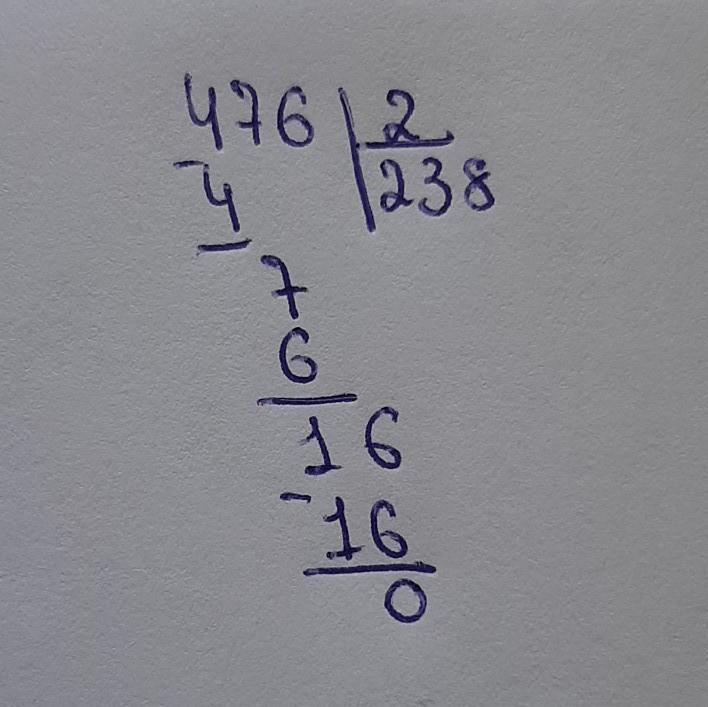 476 2
-4 238
7
6
16
-16
0